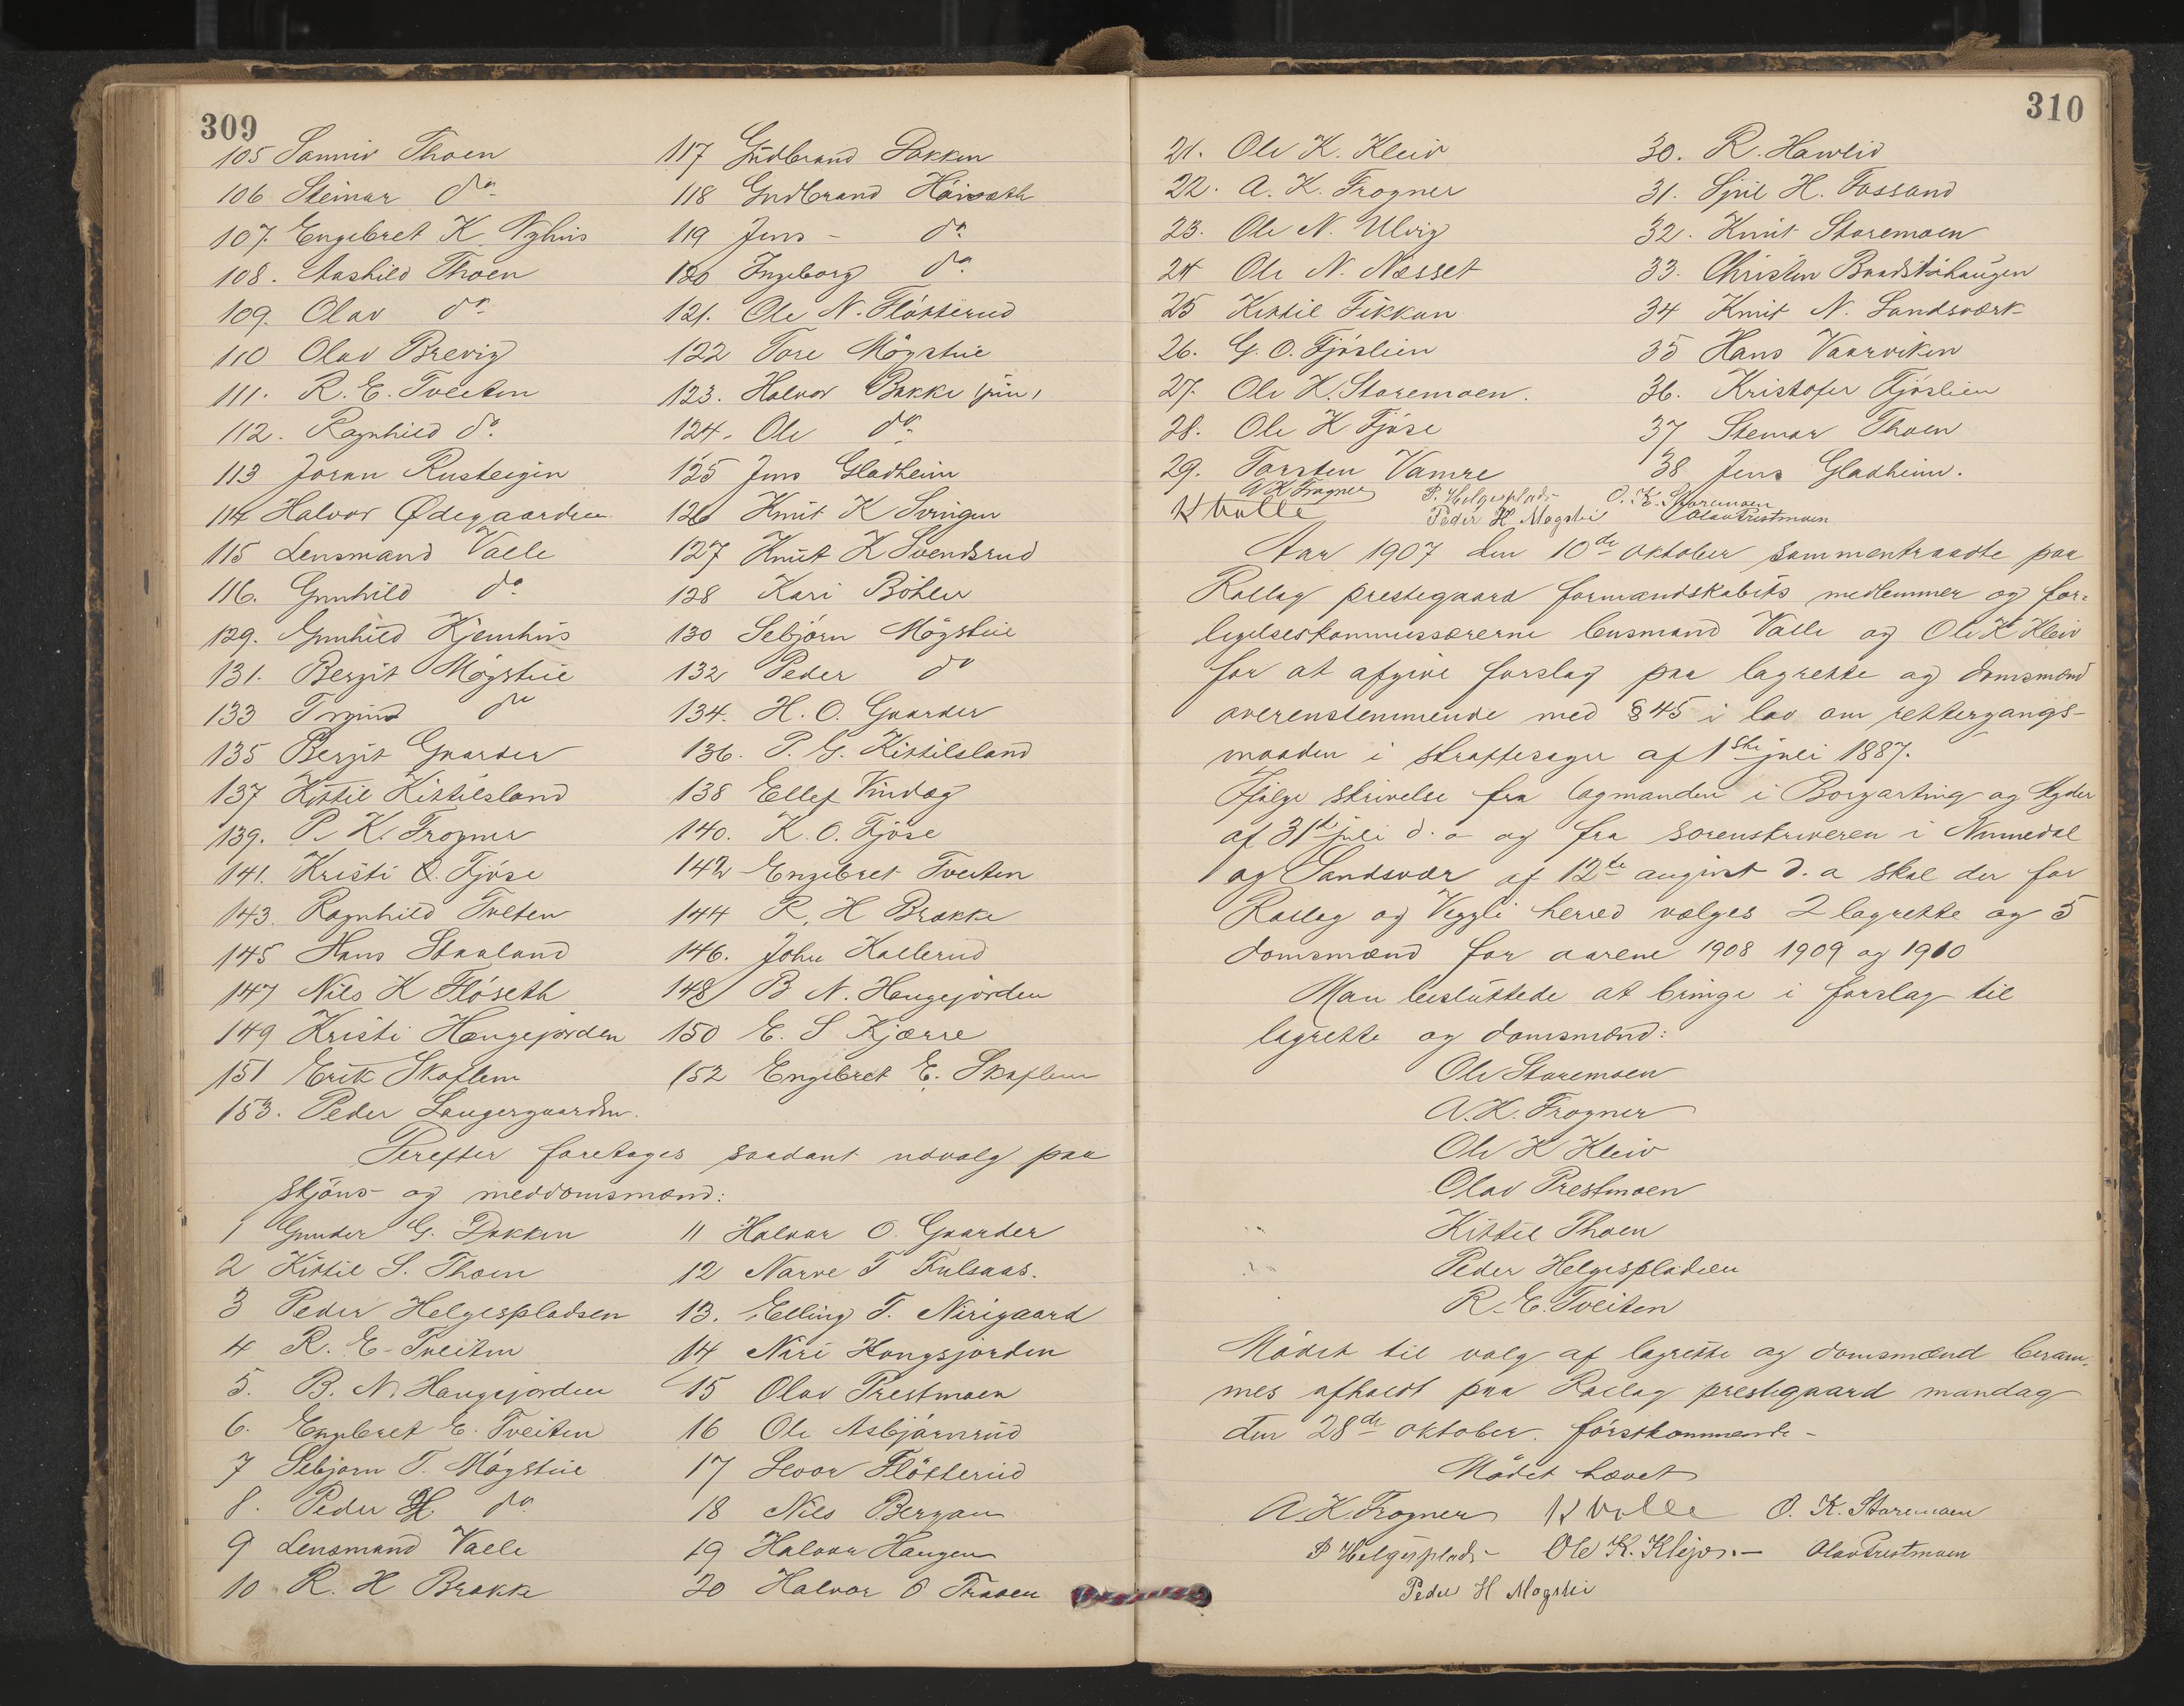 309
105 Sanniv Thoen
106 Steinar do
107. Engebret K. Nyhus
108. Aashild Thoen
109. Olav do
110 Olav Brevig
111. R. E. Tveiten
112. Ragnhild do.
113 Joran Rusteigin
114 Halvor Ødegaarden
115 Lensmand Valle
116. Gunhild do
129. Gunhild Kjemhus
131. Bergit Mögstue
133 do
135 Bergit Gaarder
137 Kittil Kittilsland
139. P. K. Frogner
141. Kristi O. Fjöse
143. Ragnhild Tveten
145 Hans Staaland
147 Nils K Flöseth
149 Kristi Haugejorden
151 Erik Skaflem
153. Peder Laugergaarden.
117 Gudbrand Bakken
118 Gudbrand Häiseth
119 Jens - do
120 Ingeborg do
121. Ole N. Flötterud
122 Tore Mögstue
123. Halvor Bakke jun,
124. Ole do
125 Jens Gladheim
126 Knut K Svingen
127 Knut K Svendsrud
128 Kari Böhler
130 Sebjörn Mögstue
132 Peder do
134. H. O. Gaarder
136. P. G. Kittilsland
138 Ellef Vindeg
140. K. O. Fjöse
142 Engebret Tveiten
144 R. H Brakke
146. John Kallerud
148 B N. Haugejorden
150 E. S Kjærre
152 Engebret E. Skaflem
Derefter foretages saadant udvalg paa
skjöns- og meddomsmænd:
1 Gunder G. Bakken
2 Kittil S. Thoen
3 Peder Helgespladsen
4 R. E. Tveiten
5. B. N. Haugejorden
6. Engebret E. Tveiten
7 Sebjörn T. Mögstue
8. Peder H. do
9 Lensmand Valle
10 R. H Brakke
11 Halvor O. Gaarder
12 Narve T Fulsaas.
13. Elling T. Nirigaard
14 Niri Kongsjorden
15 Olav Prestmoen
16 Ole Asbjörnrud
17 Sevor Flötterud
18 Nils Bergan
19 Halvor Haugen
20 Halvor O Traaen
310
21. Ole K. Kleiv
22. A. K. Frogner
23. Ole N. Ulvig
24 Ole N. Næsset
25 Kittil Fikkan
26. G. O. Fjöslien
27. Ole K. Staremoen.
28. Ole K Fjöse
29. Torsten Vamre
30. R. Hawlid
31. H. Fossand
32. Knut Staremoen
33. Christen
34 Knut N. Landsværk
35 Hans Vaarviken
36. Kristofer Fjöslien
37 Steinar Thoen
38 Jens Gladheim.
A K Frogner P. Helgesplads O. K. Staremoen
K Valle Peder H Mogstui Olav Prestmoen
Aar 1907 den 10de oktober sammentraadte paa
Rollag prestegaard formandskabets medlemmer og for-
ligelseskommissærerne lensmand Valle og Ole K Kleiv
for at afgive forslag paa lagrette og domsmænd
overenstemmende med § 45 i lov om rettergangs-
maaden i straffesager af 1ste juli 1887.
Ifölge skrivelse fra lagmanden i Borgarting og Agder
af 31te juli d. a og fra sorenskriveren i Numedal
og Sandsvær af 12te august d. a skal der for
Rollag og Veggli herred vælges 2 lagrette og 5
domsmænd for aarene 1908 1909 og 1910
Man besluttede at bringe i forslag til
lagrette og domsmænd:
Ole Staremoen
A. K. Frogner
Ole K Kleiv
Olav Prestmoen
Kittil Thoen
Peder Helgespladsen
R. E. Tveiten
Mödet til valg af lagrette og domsmænd beram-
mes afholdt paa Rollag prestegaard mandag
den 28de oktober förstkommende-
Mödet hævet
A. K. Frogner K Valle O. K. Staremoen
P Helgesplads Ole K. Klejv. Olav Prestmoen
Peder H Mogstui